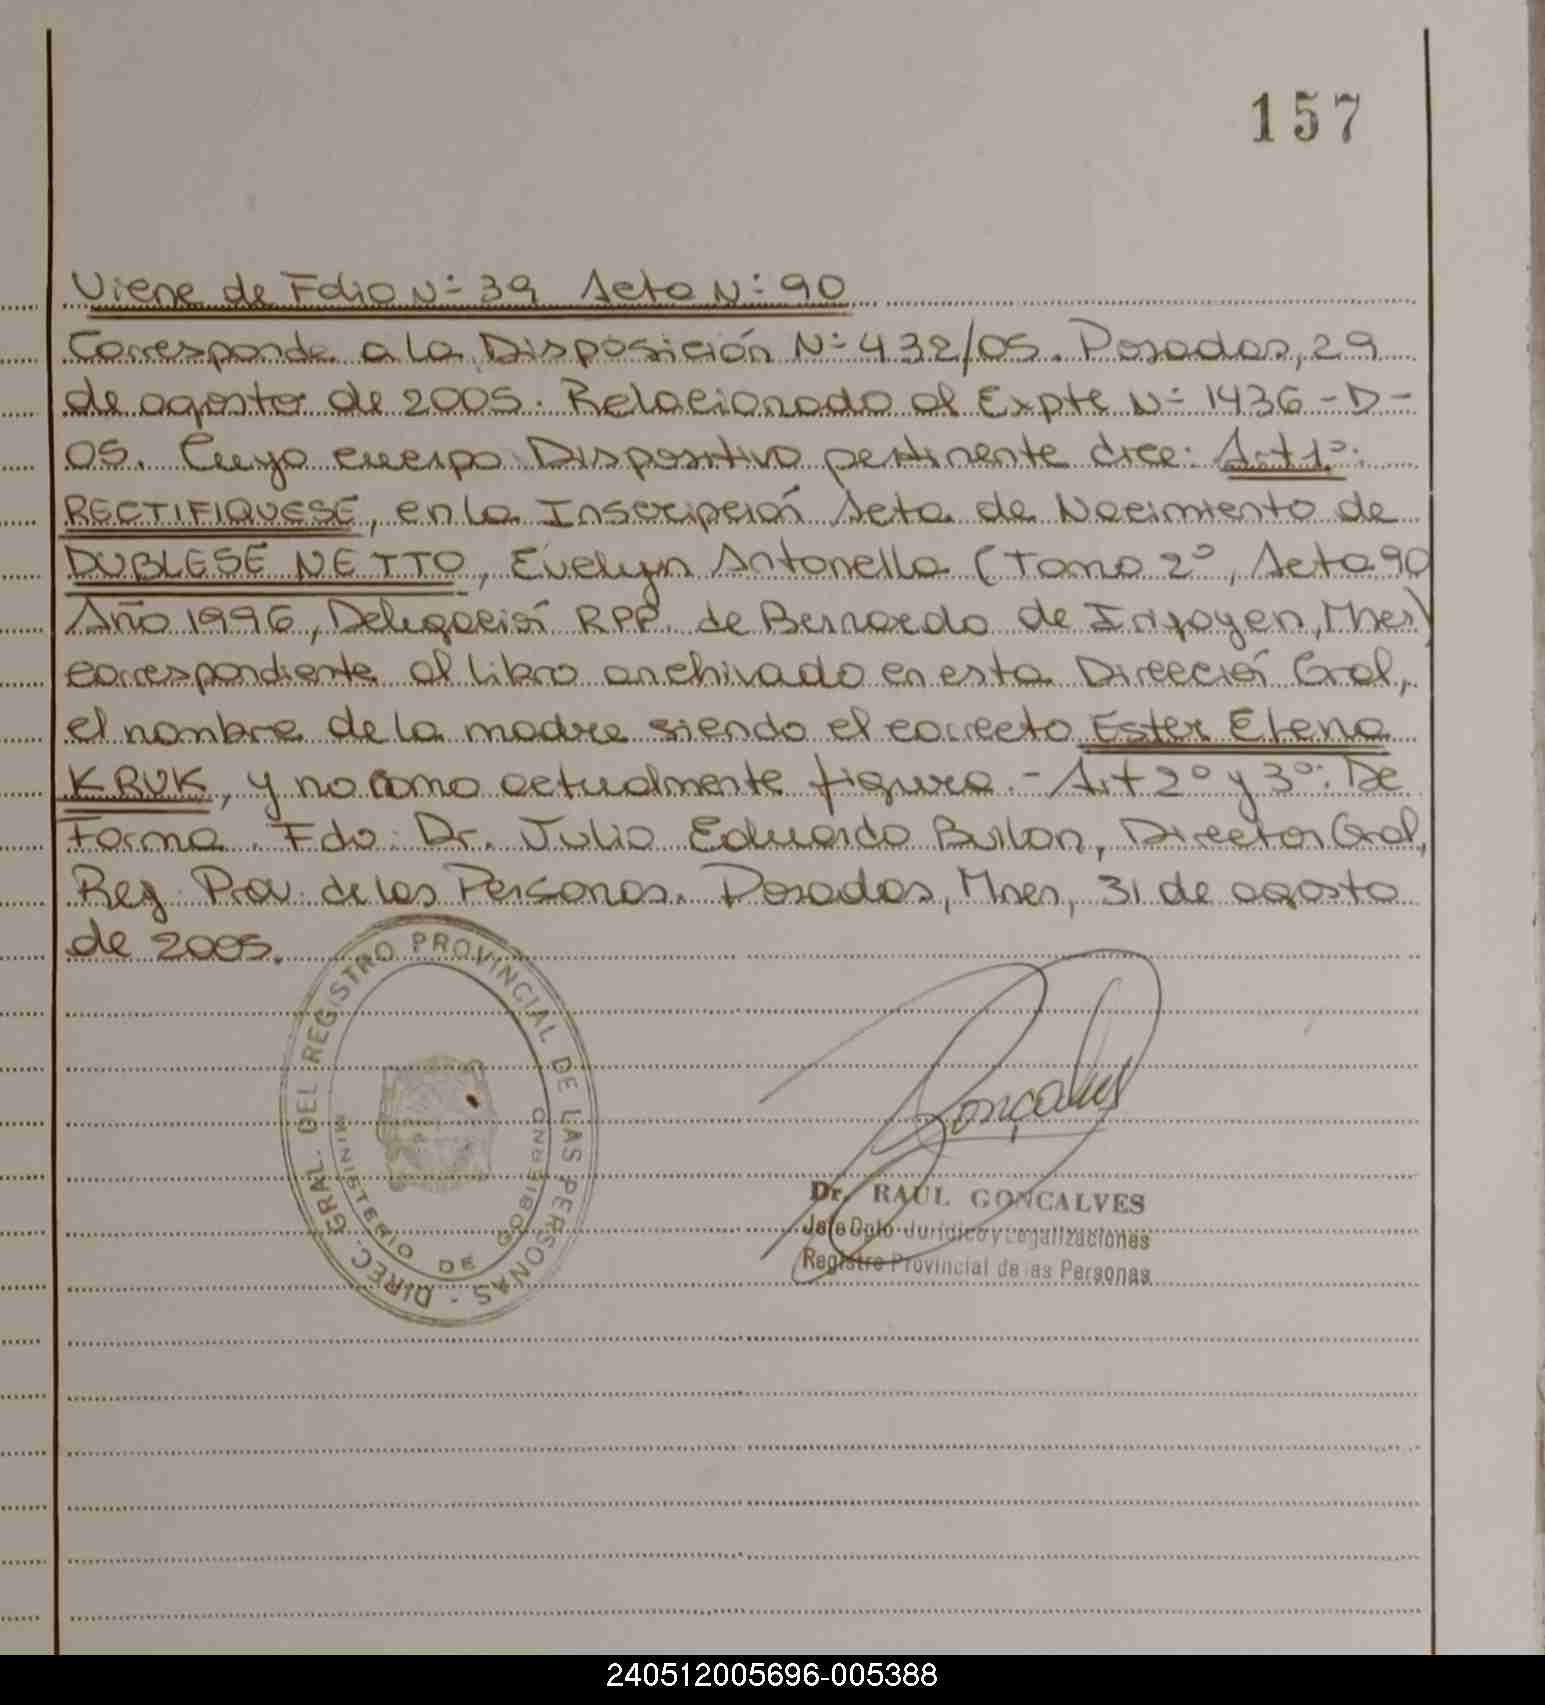 157
Viene de Folio Nº 39 Acta Nº 90
Corresponde a la Disposición Nº 432/05. Posadas, 29
de agosto de 2005. Relacionado al Expte Nº 1436-D-
05. Cuyo cuerpo Dispositivo pertinente dice: Art 1º:
RECTIFIQUESE, en la Inscripción Acta de Nacimiento de
DUBLESE NETTO, Evelyn Antonella (Tomo 2º, Acta 90
Año 1996, Delegación RPP. de Bernardo de Irigoyen, Mnes)
correspondiente al libro archivado en esta Dirección Gral,
el nombre de la madre siendo el correcto Ester Elena
KRUK, y no como actualmente figura.- Art 2º y 3º: De
Forma. Fdo: Dr. Julio Eduardo Burlon, Director Gral,
Reg. Prov. de las Personas. Posadas, Mnes, 31 de agosto
de 2005.
DIREC. GRAL. DEL REGISTRO PROVINCIAL DE LAS PERSONAS -
MINISTERIO DE GOBIERNO
Gonçalves
Dr. RAUL GONCALVES
Jefe Dpto Jurídico y Legalizaciones
Registro Provincial de las Personas
240512005696-005388